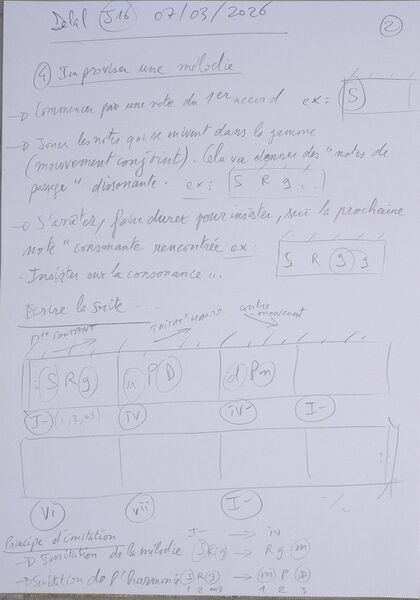 Delal J16 07/03/2026
2
④ Improviser une mélodie
→ Commencer par une note du 1er accord ex = S
→ Jouer les notes qui se suivent dans la gamme
(mouvement conjoint). Cela va donner des "notes de
passage" dissonante. ex: S R g . .
→ S'arrêter, faire durer pour insister, sur la prochaine
note "consonante rencontrée ex:
S R g g
. Insister sur la consonance ...
Ecrire la suite ...
contre
mouvement
S R g m P D d P m
I- (1, 2, m3) IV IV- I-
VI VII I- ./.
Principe d'imitation I- → IV
→ Imitation de la mélodie S R g → R g m
→ Imitation de l'harmonie S R g → m P D
1 2 m3 1 2 3